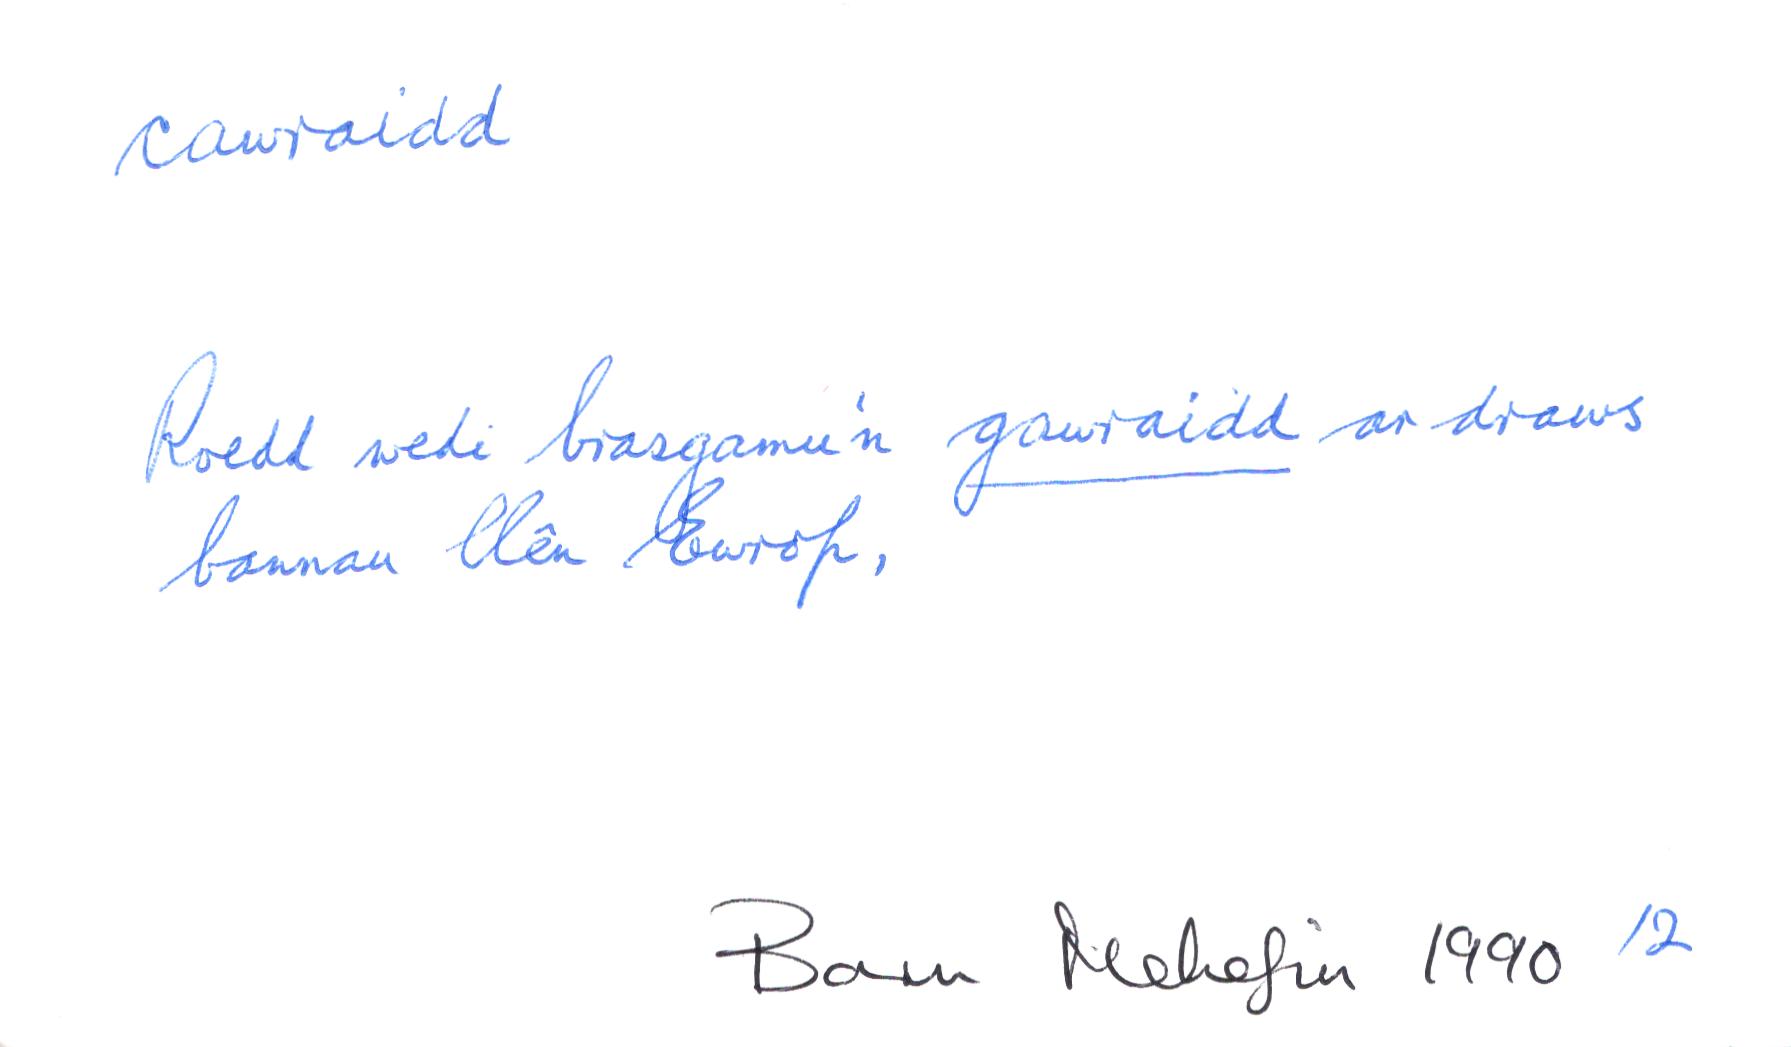 cawraidd
Roedd wedi brasgamu'n gawraidd ar draws
bannau llên Ewrop,
Barn Mehefin 1990 12